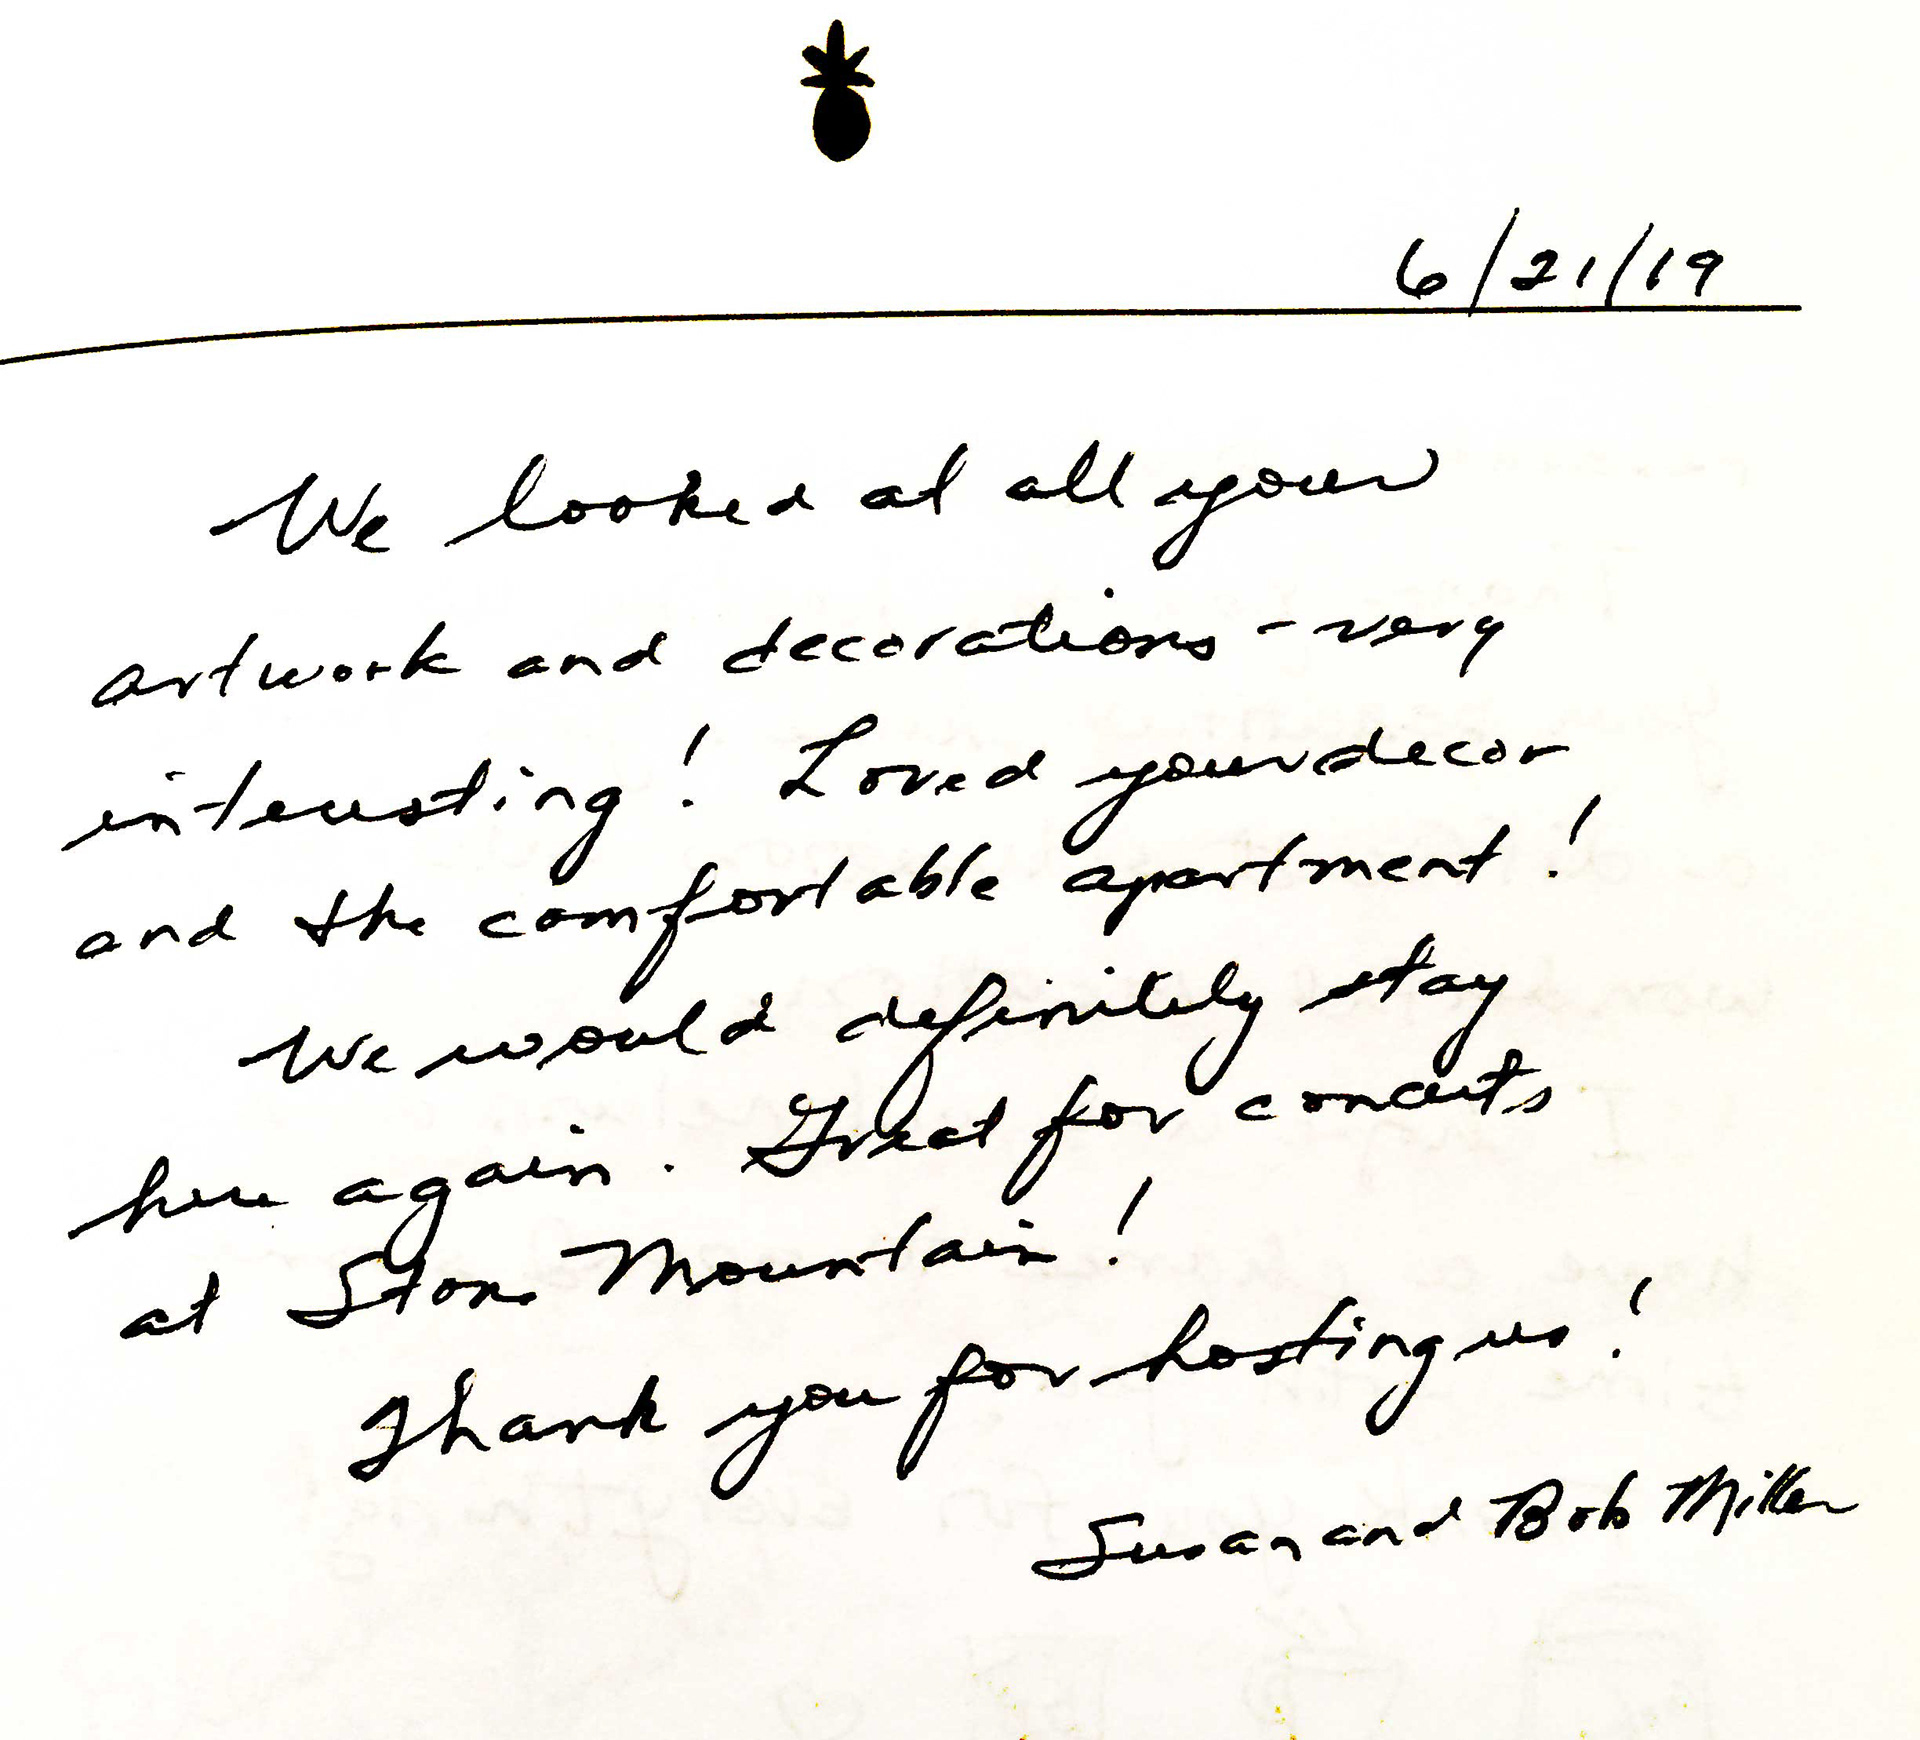 6/21/19
We looked at all your
artwork and decorations - very
interesting! Loved your decor
and the comfortable apartment!
We would definitely stay
here again. Great for concerts
at Stone Mountain!
Thank you for hosting us!
Susan and Bob Miller